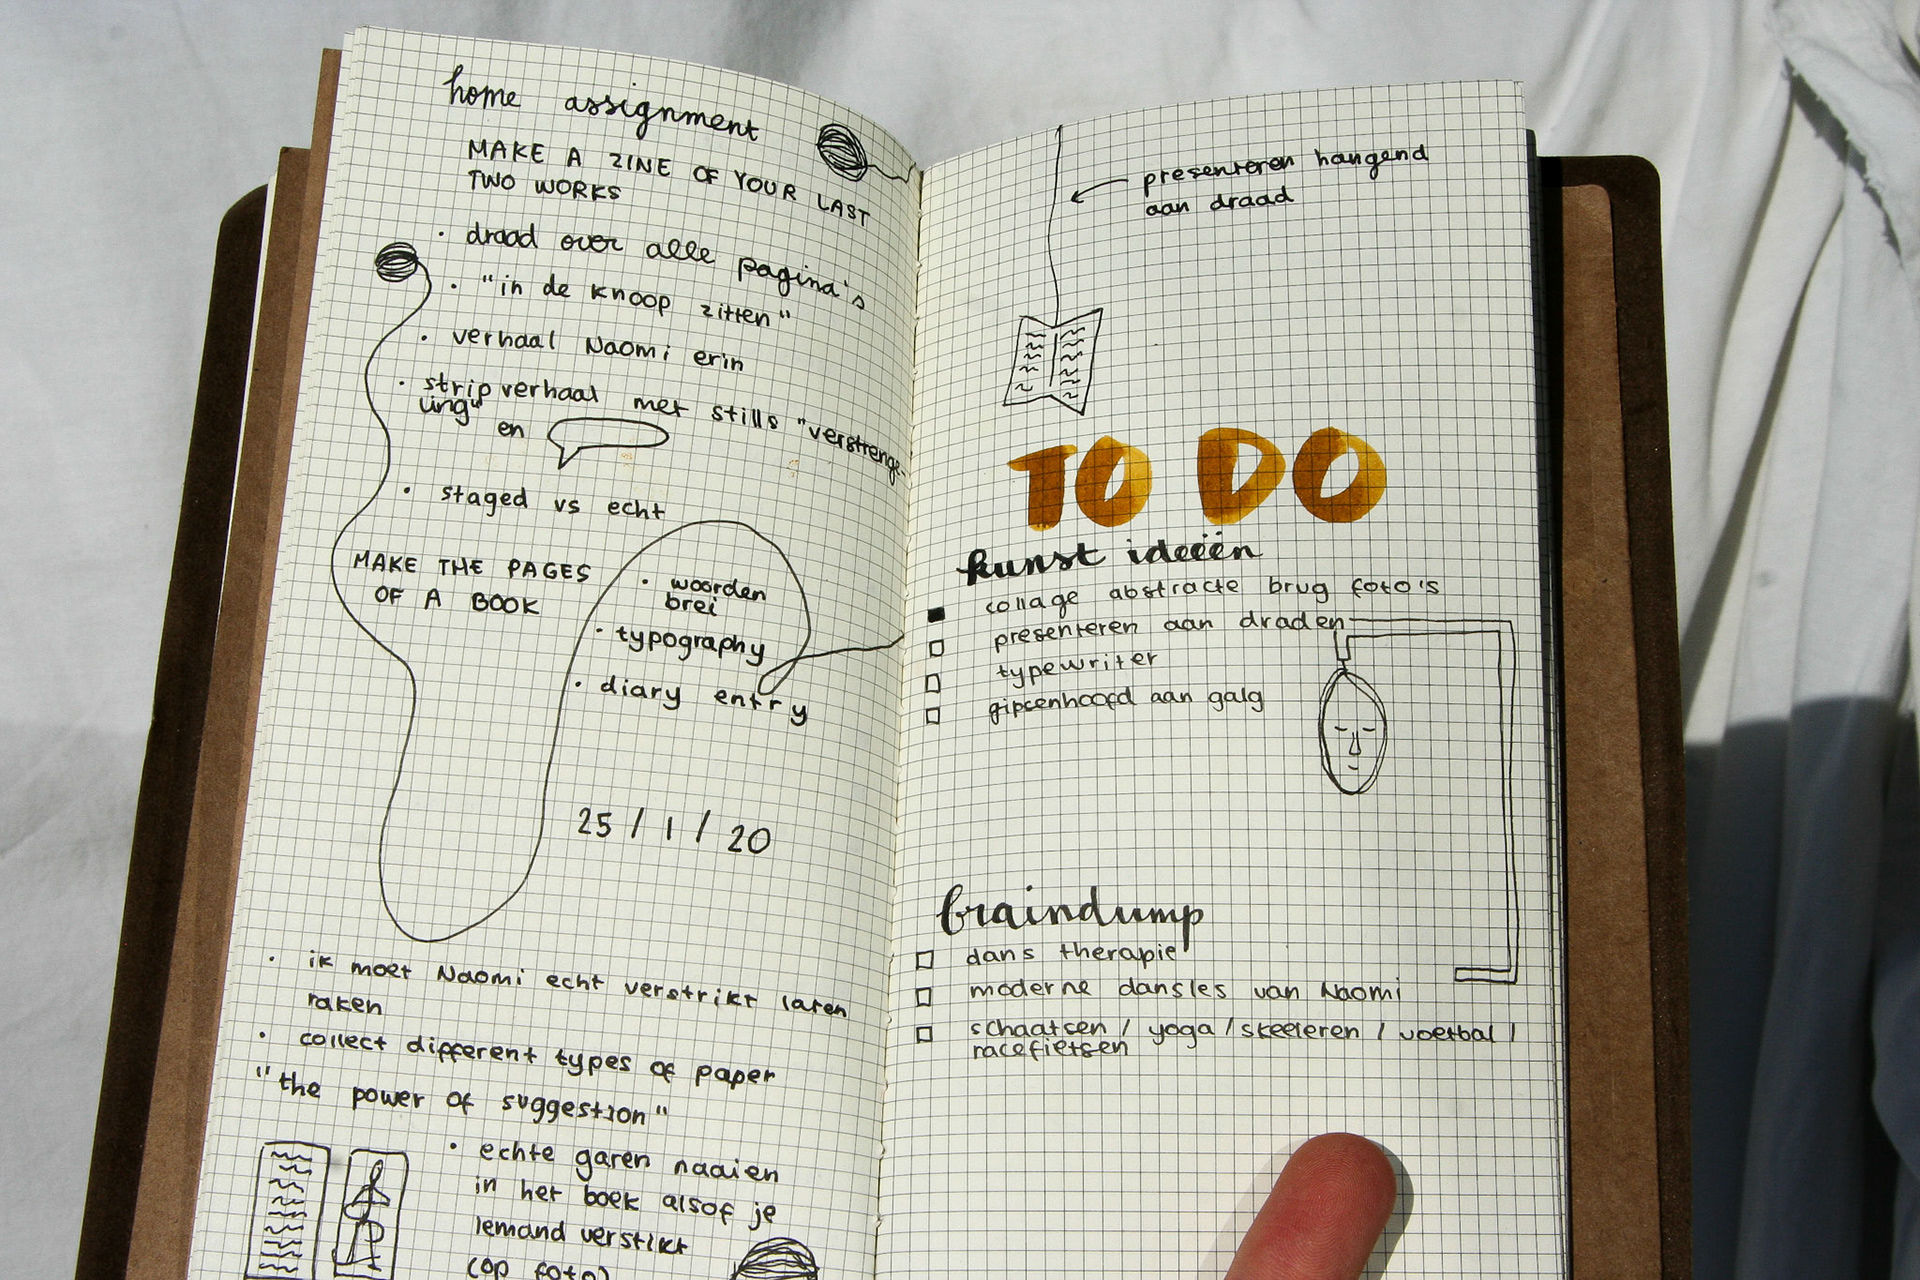 home assignment
MAKE A ZINE OF YOUR LAST
TWO WORKS
· draad over alle pagina's
· "in de knoop zitten"
· verhaal Naomi erin
· stripverhaal met stills "verstrenge-
ling"
en
· staged vs echt
MAKE THE PAGES
OF A BOOK
· woorden
brei
· typography
· diary entry
25/1/20
· ik moet Naomi echt verstrikt laten
raken
· collect different types of paper
"the power of suggestion"
· echte garen naaien
in het boek alsof je
iemand verstikt
(op foto)
presenteren hangend
aan draad
TO DO
kunst ideeën
collage abstracte brug foto's
presenteren aan draden
typewriter
gipsenhoofd aan galg
braindump
dans therapie
moderne dansles van Naomi
schaatsen / yoga / skeeleren / voetbal /
racefietsen